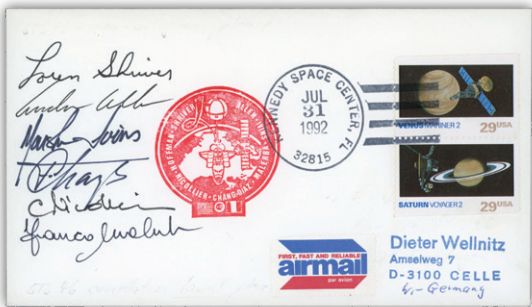 Loren Shriver
Marsha Ivins
Franco Malerba
HOFFMAN · SHRIVER · ALLEN
NICOLLIER · CHANG-DIAZ · MALERBA
KENNEDY SPACE CENTER, FL
JUL
31
1992
32815
VENUS MARINER 2 29 USA
SATURN VOYAGER 2 29 USA
FIRST, FAST AND RELIABLE
airmail
par avion
Dieter Wellnitz
Amselweg 7
D-3100 CELLE
W.- Germany